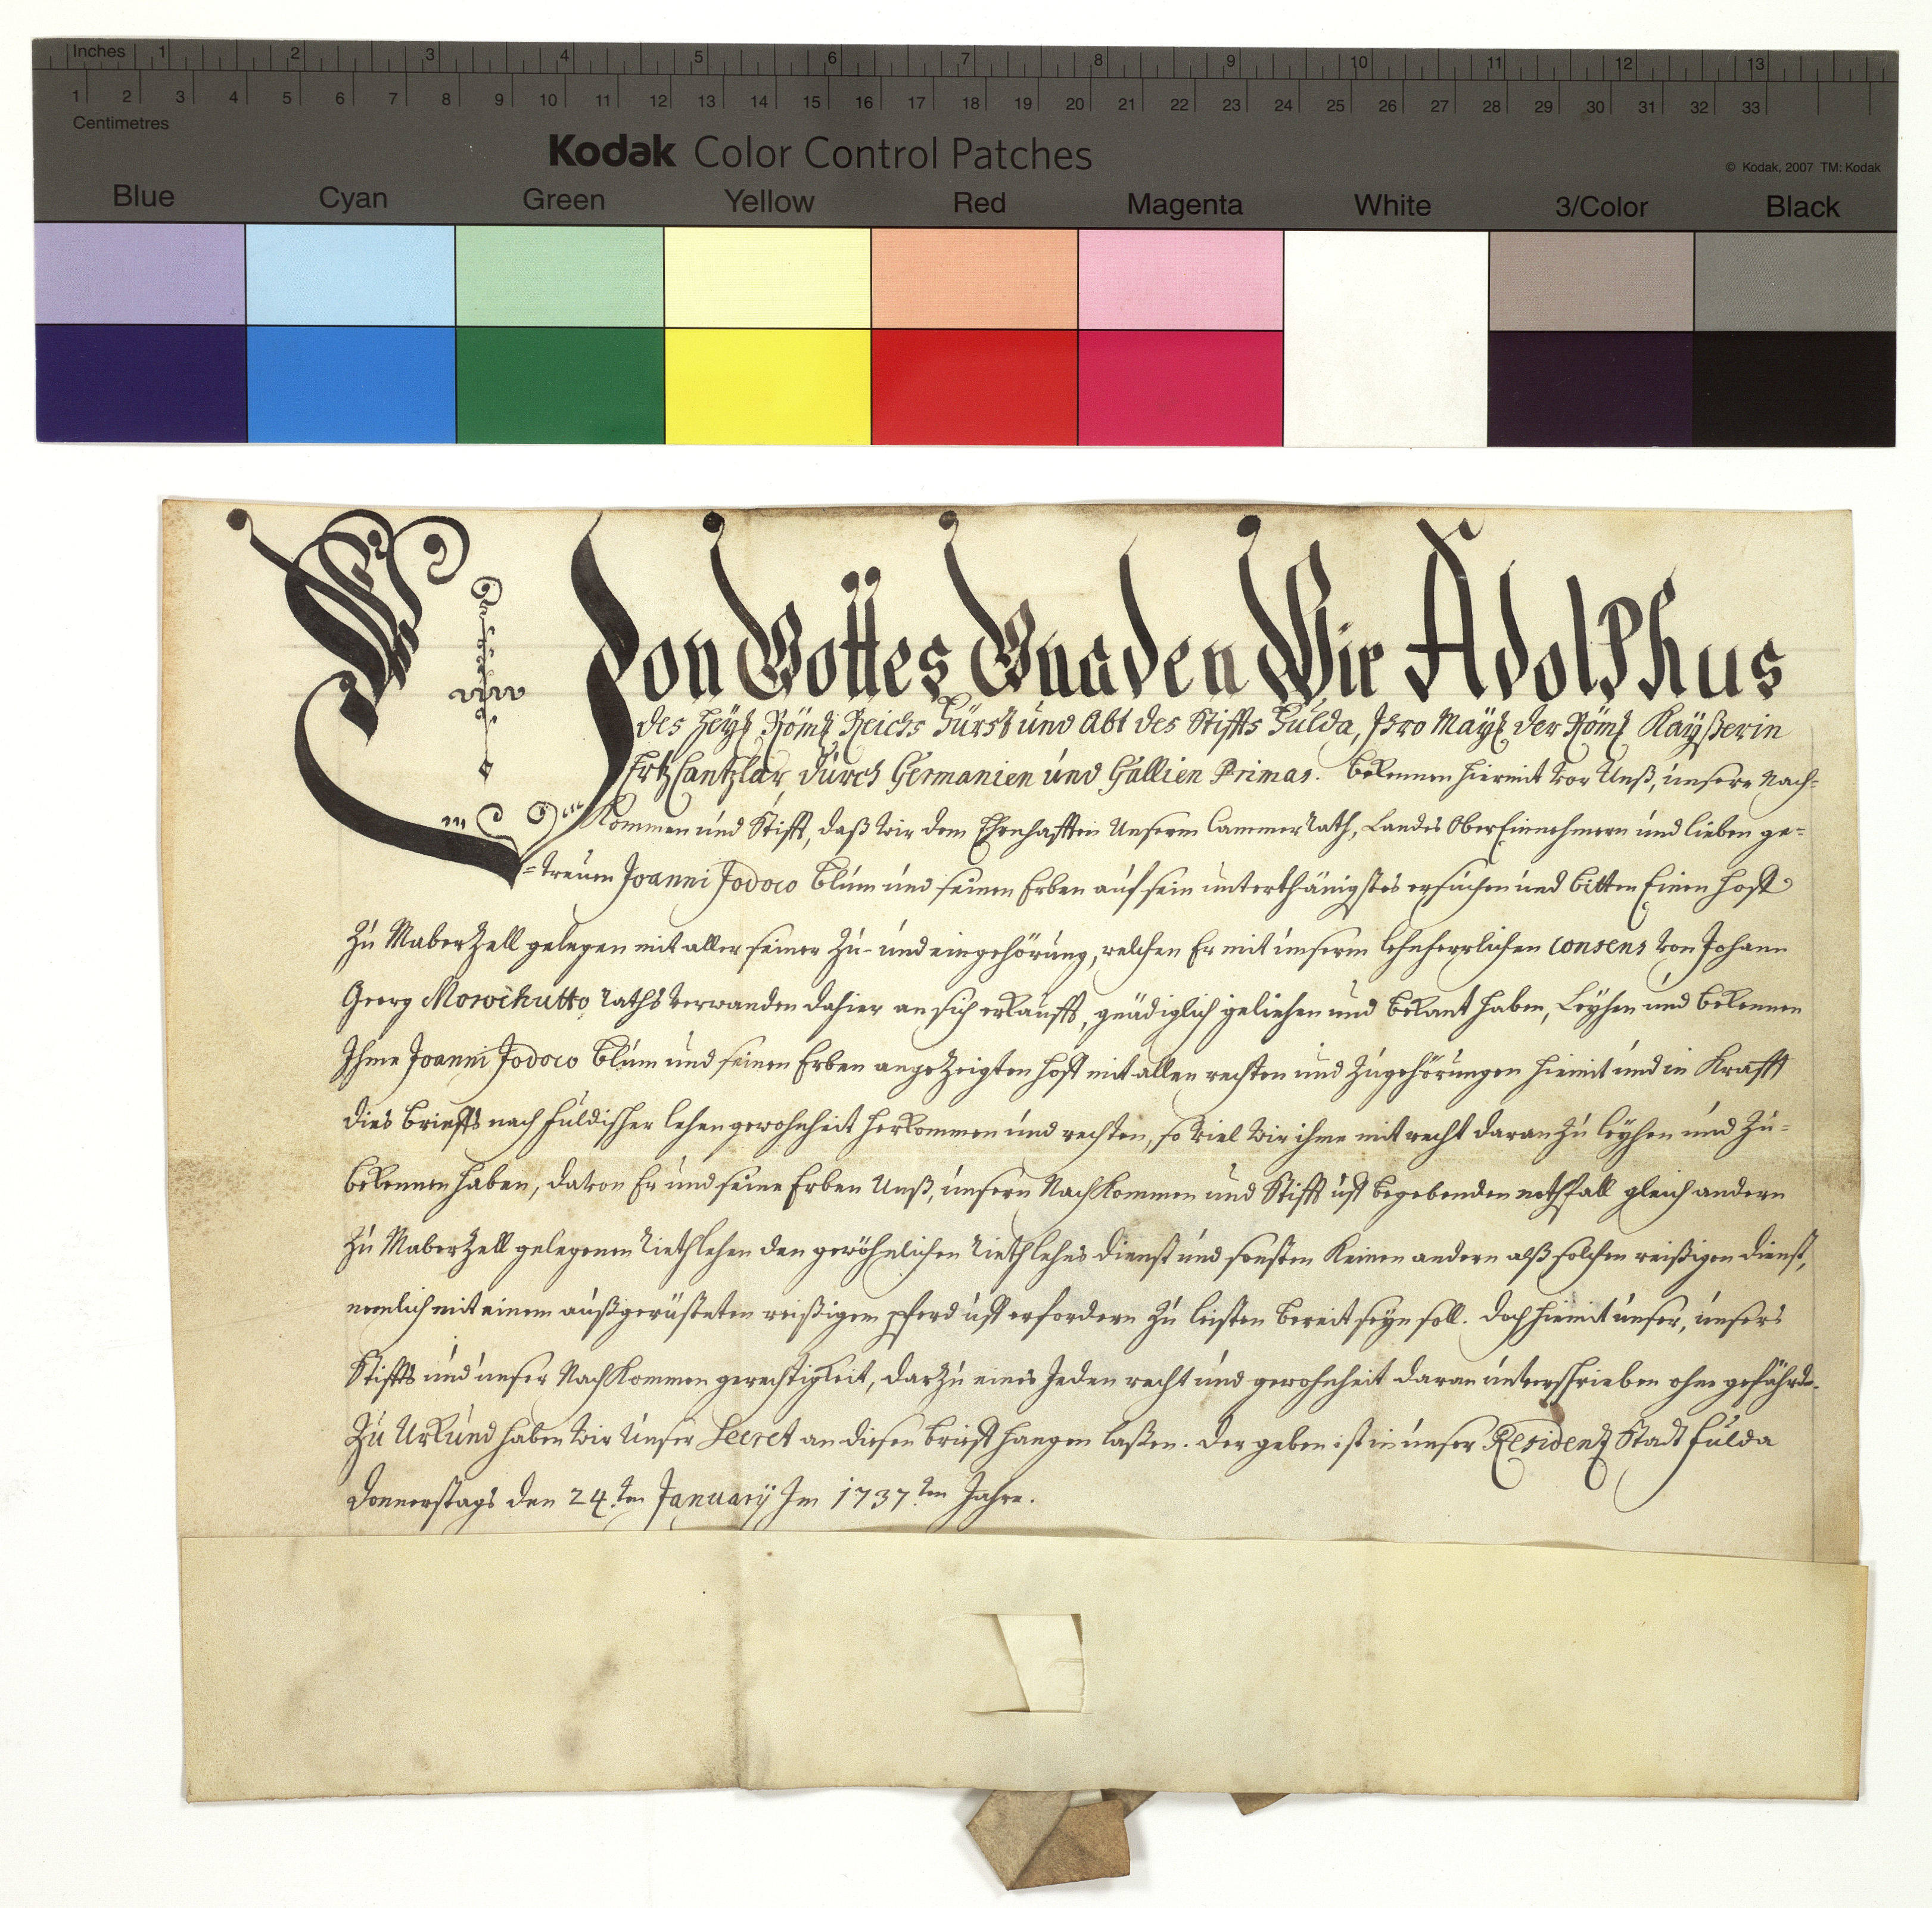 Inches 1 2 3 4 5 6 7 8 9 10 11 12 13
1 2 3 4 5 6 7 8 9 10 11 12 13 14 15 16 17 18 19 20 21 22 23 24 25 26 27 28 29 30 31 32 33
Centimetres
Kodak Color Control Patches
© Kodak, 2007 TM: Kodak
Blue Cyan Green Yellow Red Magenta White 3/Color Black
Von Gottes Gnaden Wir Adolphus
des Heyl Röml Reichs Fürst und Abt des Stiffts Fulda, Ihro Mayt der Röml Kayßerin
ErtzCantzlar, durch Germanien und Gallien Primas. bekennen hiermit vor Unß, unsere Nach-
kommen und Stifft, daß wir dem Ehrnhafften Unserm CammerRath, Landes OberEinnehmern und lieben ge-
-treuen Joanni Jodoco Blum und seinen Erben auf sein unterthänigstes ersuchen und bitten Einen Hoff
zu Maberzell gelegen mit aller seiner Zu- und eingehörung, welchen Er mit unserm lehnherrlichen consens von Johann
Georg raths Verwanden dahier an sich erkaufft, gnädiglich geliehen und bekant haben, Leyhen und bekennen
Ihme Joanni Jodoco Blum und seinen Erben angezeigten Hoff mit allen rechten und Zugehörungen hiemit und in Krafft
dies brieffs nach Fuldischer lehen gewohnheit herkommen und rechten, so viel wir ihme mit recht daran zu leyhen und zu-
bekennen haben, davon Er und seine Erben Unß, unsern Nachkommen und Stifft uff begebenden nothfall gleich andern
zu Maberzell gelegenen riethlehen den gewöhnlichen riethlehns dienst und sonsten keinen andern alß solchen reißigen dienst,
nemlich mit einem außgerüsteten reißigem pferd uff erfordern zu leisten bereit seyn soll. doch hiemit unser, unsers
Stiffts und unser Nachkommen gerechtigkeit, darzu eines Jeden recht und gewohnheit daran ohne gefährde.
Zu Urkund haben wir Unser Secret an diesen brieff hangen laßen. der geben ist in unser Residentz Stadt Fulda
Donnerstags den 24.ten January Im 1737.ten Jahre.